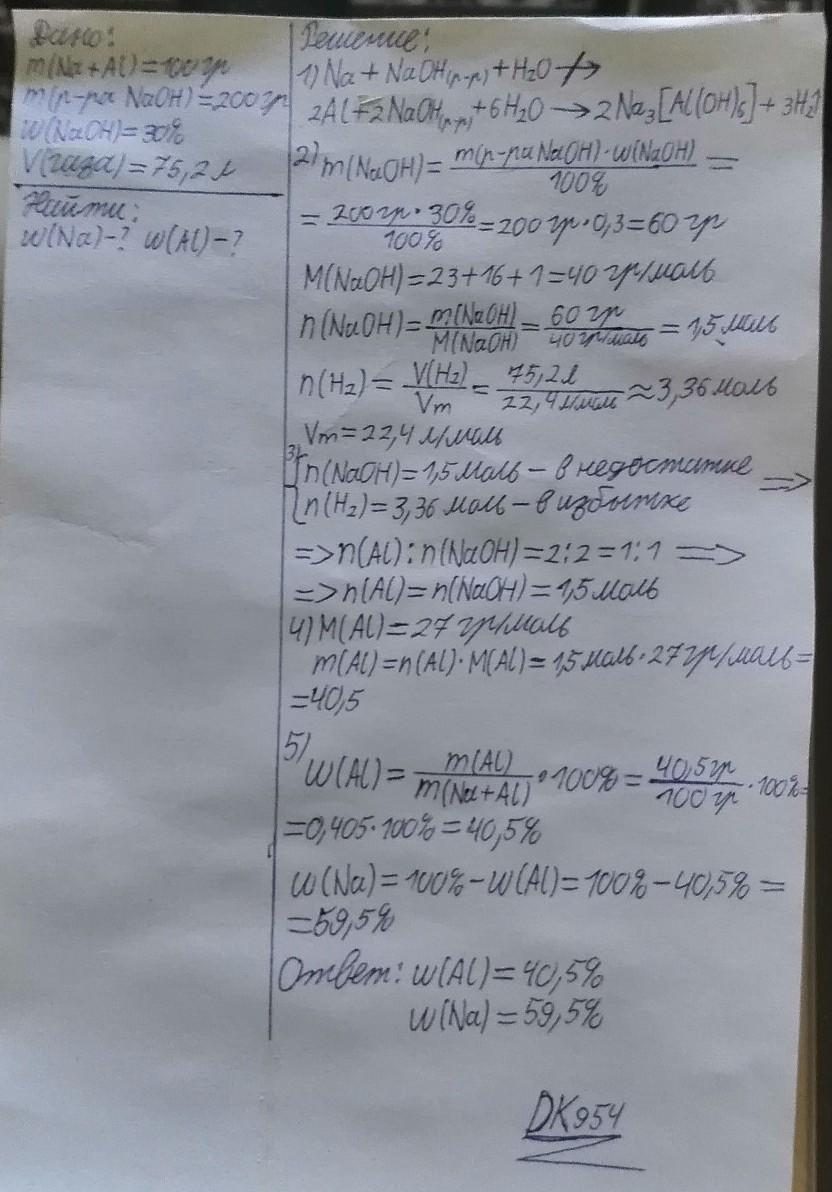 Дано:
m(Na+Al)=100гр
m(р-ра NaOH)=200гр
w(NaOH)=30%
V(газа)=75,2л
Найти:
w(Na)-? w(Al)-?
Решение:
1) Na+NaOH(р-р)+H₂O↛
2Al+2NaOH(р-р)+6H₂O→2Na₃[Al(OH)₆]+3H₂↑
2) m(NaOH)= m(р-ра NaOH)·w(NaOH)/100% =
= 200гр·30%/100% =200гр·0,3=60гр
M(NaOH)=23+16+1=40гр/моль
n(NaOH)= m(NaOH)/M(NaOH) = 60гр/40гр/моль = 1,5моль
n(H₂)= V(H₂)/Vm = 75,2л/22,4л/моль ≈3,36моль
Vm=22,4л/моль
3) {n(NaOH)=1,5моль – в недостатке =>
{n(H₂)=3,36моль – в избытке
=>n(Al):n(NaOH)=2:2=1:1 =>
=>n(Al)=n(NaOH)=1,5моль
4) M(Al)=27гр/моль
m(Al)=n(Al)·M(Al)=1,5моль·27гр/моль=
=40,5
5) w(Al)= m(Al)/m(Na+Al) ·100%= 40,5гр/100гр ·100%=
=0,405·100%=40,5%
w(Na)=100%-w(Al)=100%-40,5%=
=59,5%
Ответ: w(Al)=40,5%
w(Na)=59,5%
DK954